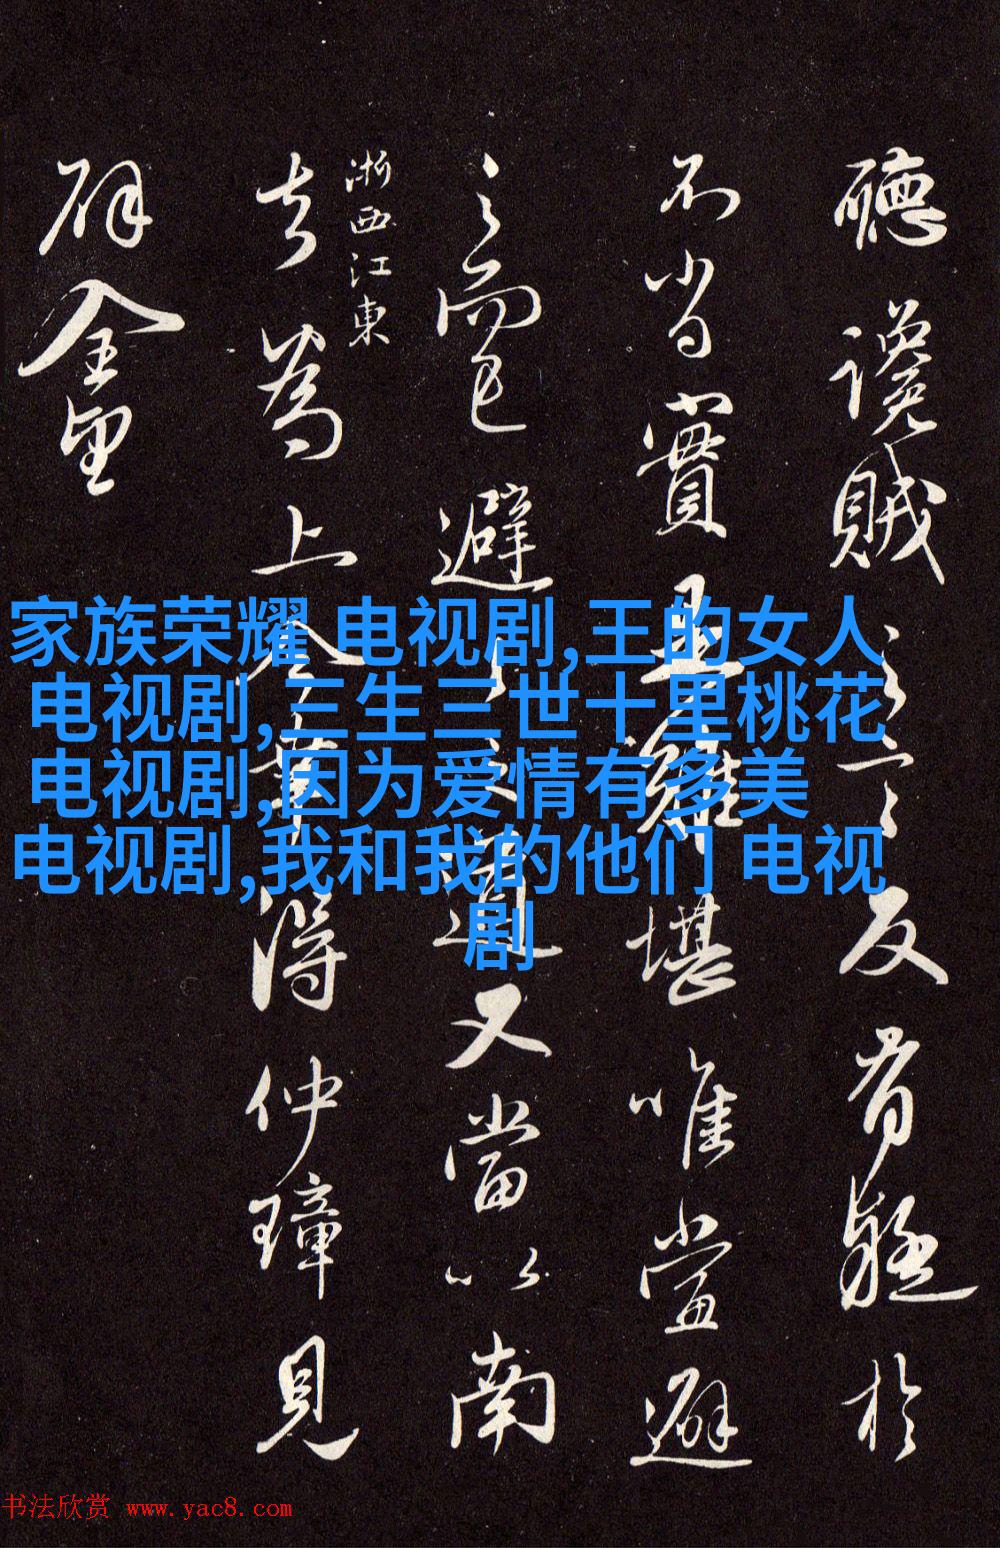 聽讒賊之言反疑於
不省實且難堪唯當避
之而已避之之道又當以南
浙西江東
去為上得仲璋見
辟金
家族荣耀 电视剧,王的女人
电视剧,三生三世十里桃花
电视剧,因为爱情有多美
电视剧,我和我的他们 电视
剧
书法欣赏 www.yac8.com